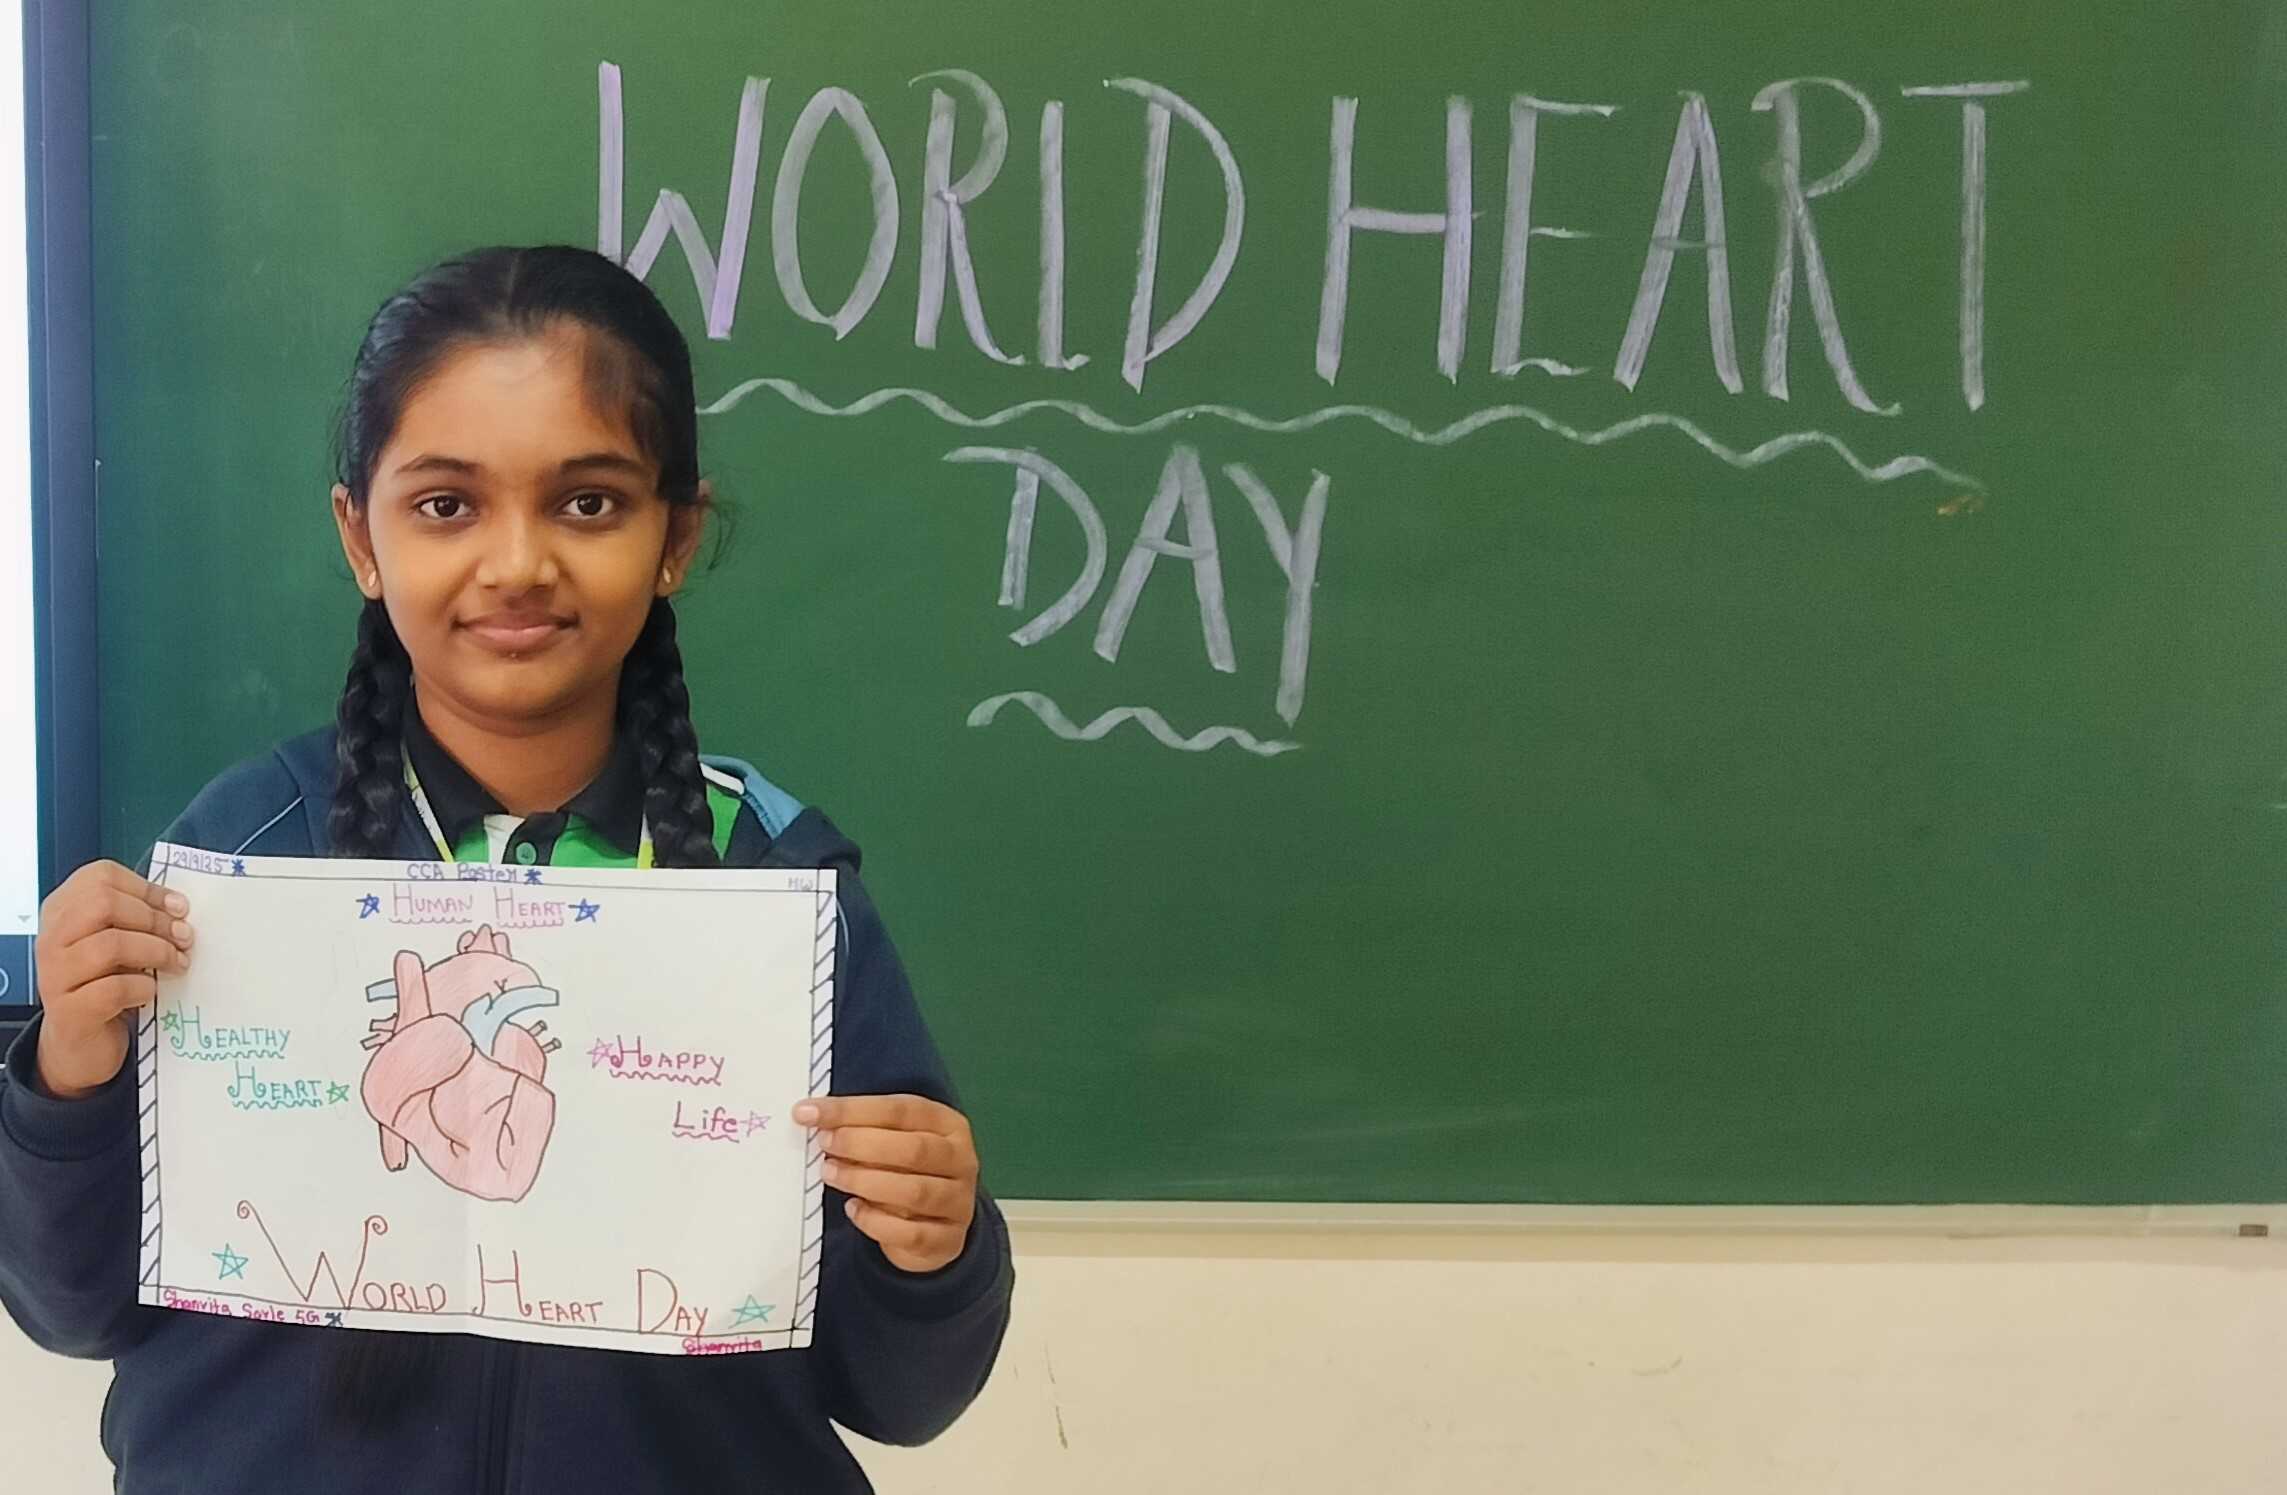 WORLD HEART
DAY
29/9/25
CCA Poster
HW
HUMAN HEART
HEALTHY
HEART
HAPPY
Life
WORLD HEART DAY
Shanvita Sarle 5G
Shanvita